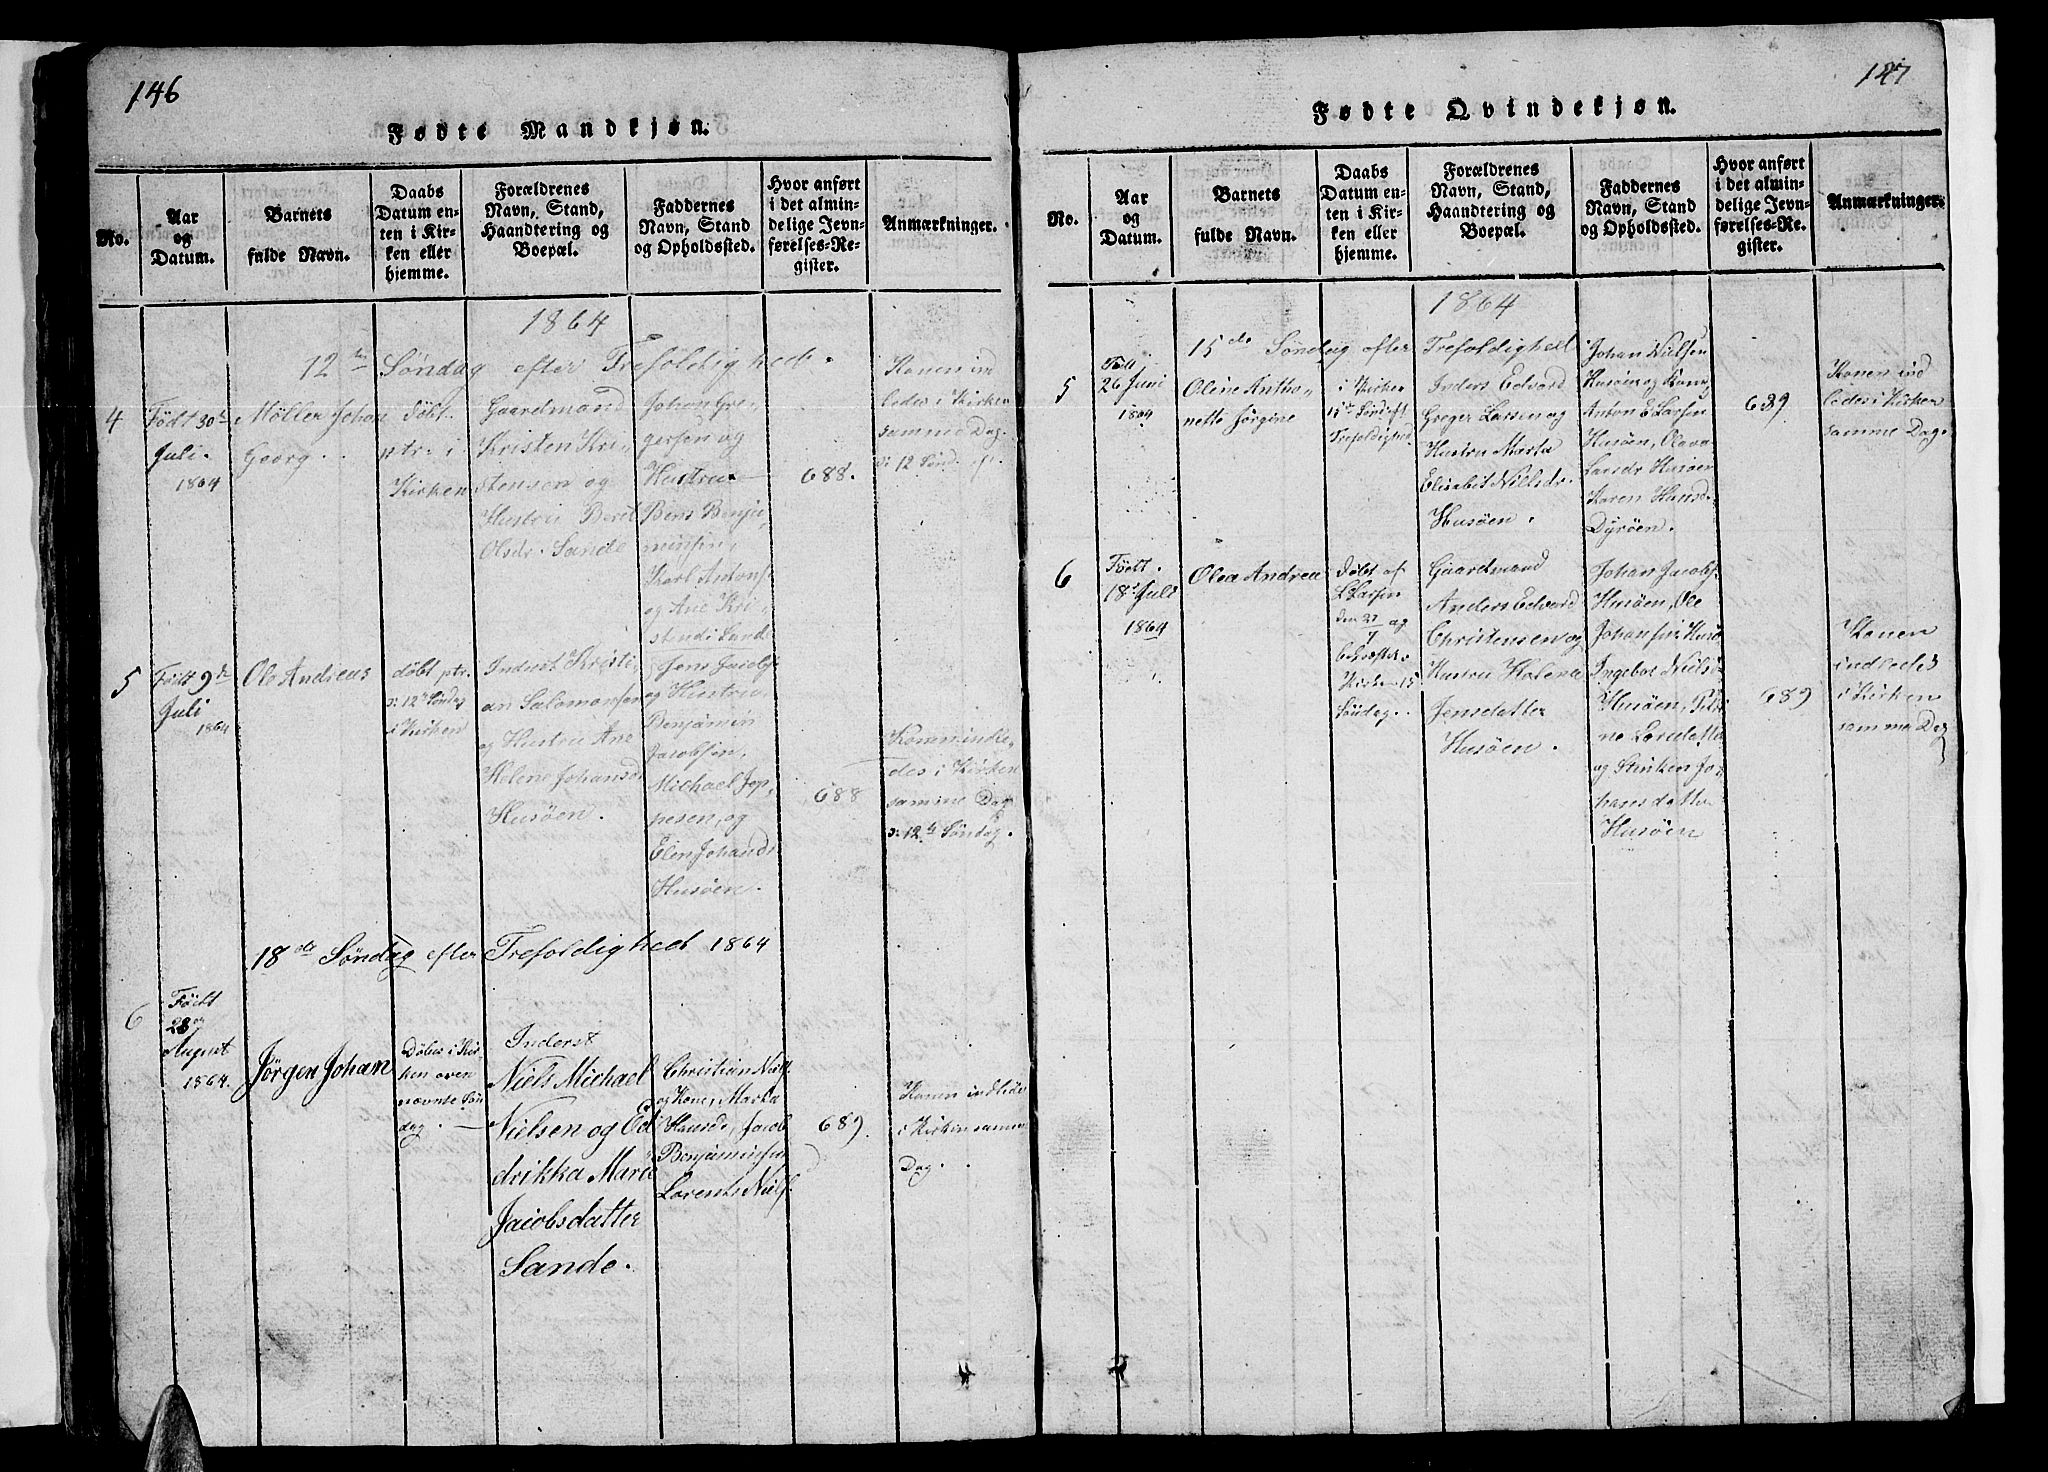 146
Fødte Mandkjøn.
No.
Aar
og
Datum.
Barnets
fulde Navn.
Daabs
Datum en-
ten i Kir-
ken eller
hjemme.
Forældrenes
Navn, Stand,
Haandtering og
Boepæl.
Faddernes
Navn, Stand
og Opholdssted.
Hvor anført
i det almin-
delige Jevn-
førelses-Re-
gister.
Anmærkninger.
1864
12te Søndag efter Trefoldighed.
4
Født 30te
Juli.
1864
Møller Johan
Georg
døbt
ptr. i
Kirken
Gaardmand
Kristen Kri-
stensen og
Hustru Beret
Olsdr. Sande
Johan Gre-
gersen og
Hustru
Bens Benja-
minsen,
Karl Antons.
og Ane Kri-
stensd: Sande
688.
Konen ind
ledes i Kirken
samme Dag
: 12 Sønd. ef.
5
Født 9de
Juli
1864
Ole Andreas
døbt ptr.
: 12te Søndag
i Kirken
Inderst Kristi-
an Salomonsen
og Hustru Ane
Helene Johansd.
Husøen.
Jens Jacobs.
og Hustru
Benjamin
Jacobsen,
Michael Jep-
pesen, og
Elen Johansd.
Husøen.
688
Konen indle-
des i Kirken
samme Dag
: 12te Søndag.
18de Søndag efter Trefoldighed 1864
6
Født
28
August
1864.
Jørgen Johan
Døbes i Kir-
ken oven
nævnte Søn
dag.
Inderst
Niels Michael
Nielsen og Ed
drikka Marie
Jacobsdatter
Sande.
Christian Niels.
og Kone, Marta
Hansd., Jacob
Benjaminsen
Lorents Niels.
689.
Konen indlede
i Kirken samme
Dag.
147
Fødte Qvindekjøn.
No.
Aar
og
Datum.
Barnets
fulde Navn.
Daabs
Datum en-
ten i Kir-
ken eller
hjemme.
Forældrenes
Navn, Stand,
Haandtering og
Boepæl.
Faddernes
Navn, Stand
og Opholdssted.
Hvor anført
i det almin-
delige Jevn-
førelses-Re-
gister.
Anmærkninger.
1864
15de Søndag efter Trefoldighed
5
Født
26 Juni
1864
Oline Antho-
nette Jørgine
i Kirken
15de Sønd. eft
Trefoldighed
Inders Edvard
Greger Larsen og
Hustru Marta
Elisabet Nielsdr.
Husøen.
Johan Nielsen
Husøen og Kone,
Anton E Larsen
Husøen, Olava
Larsdr Husøen
Karen Hansd.
Dyrøen.
689
Konen ind
ledes i Kirken
samme Dag.
6
Født.
18de Juli
1864
Olea Andrea
døbt af
L Larsen
den 27 og
7
bekræftet
Kirken 15
Søndag.
Gaardmand
Anders Edvard
Christensen og
Hustru Helena
Jensdatter
Husøen.
Johan Jacobs.
Husøen, Ole
Johansen Husø
Ingebor Niels:
Husøen, Petri
ne Larsdatter
og Steriken Jo-
hansdatter
Husøen
689
Konen
indledes
i Kirken
samme Dag